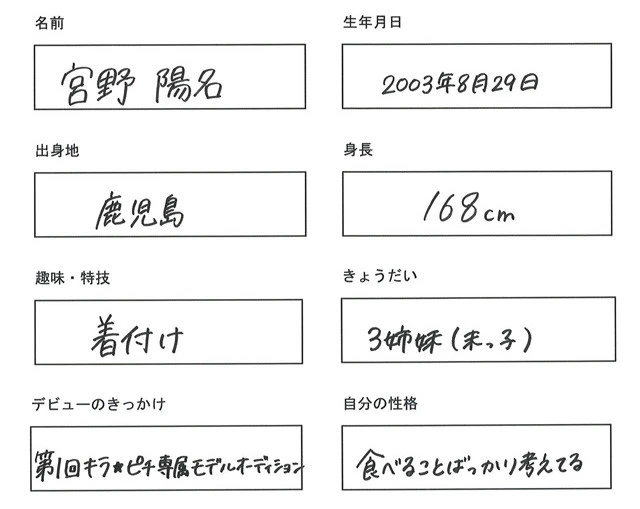 名前
宮野 陽名
生年月日
2003年8月29日
出身地
鹿児島
身長
168cm
趣味・特技
着付け
きょうだい
3姉妹(末っ子)
デビューのきっかけ
第1回キラ★ピチ専属モデルオーディション
自分の性格
食べることばっかり考えてる